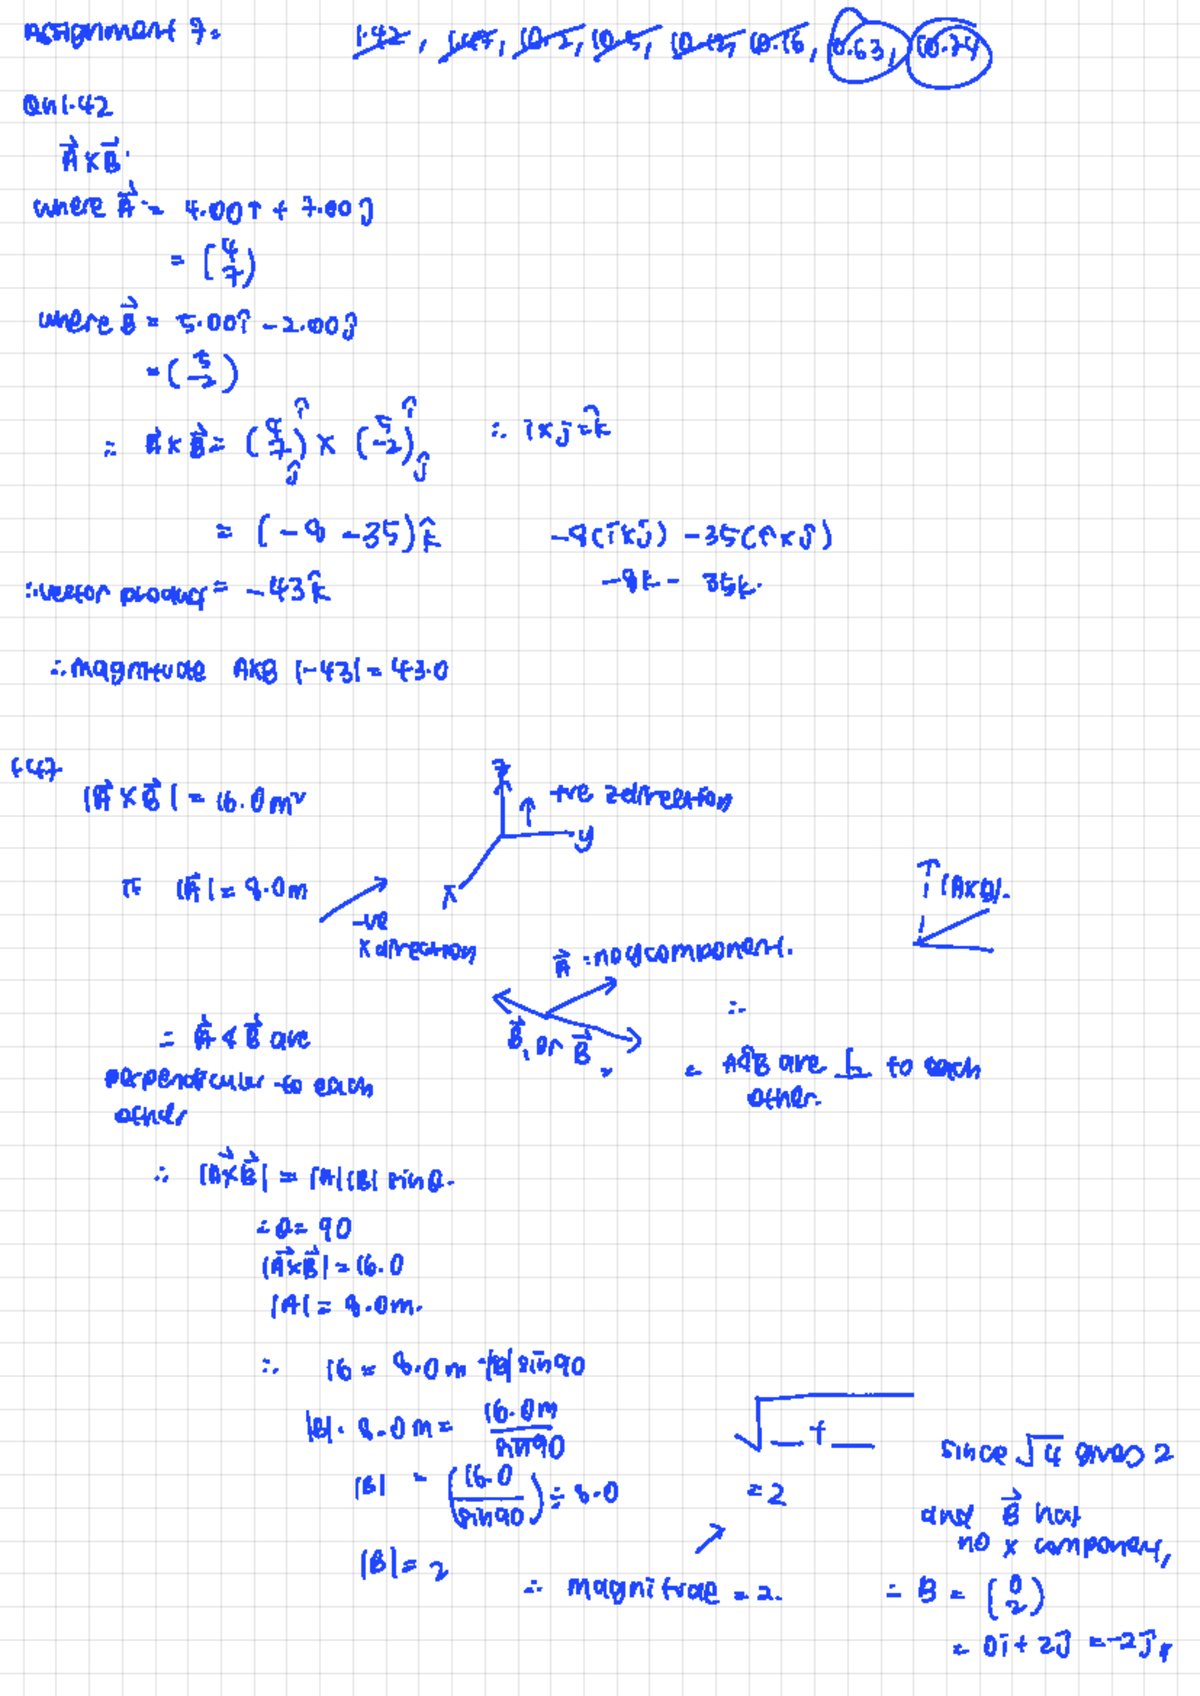 Assignment 7:
1.42, 1.47, 10.2, 10.5, 10.12, 10.16, 10.63, 10.74
Qn 1.42
A⃗ × B⃗
where A⃗ = 4.00î + 7.00ĵ
= (4 7)
where B⃗ = 5.00î - 2.00ĵ
= (5 -2)
∴ A⃗ × B⃗ = (4 7) î ĵ × (5 -2) î ĵ ∴ i × j = k̂
= (-8 - 35) k̂
-8(i×j) - 35(i×j)
∴ vector product = -43k̂
-8k - 35k.
∴ magnitude A×B |-43| = 43.0
1.47
|A⃗ × B⃗| = 16.0m²
z
+ve z direction
y
x
If |A⃗| = 8.0m
-ve
x direction
|A×B|.
A⃗ : no y component.
B⃗₁ or B⃗₂
∴
= A⃗ & B⃗ are
perpendicular to each
other
= A&B are ⊥ to each
other.
∴ |A⃗×B⃗| = |A||B| sinθ.
∴ θ = 90
|A⃗×B⃗| = 16.0
|A| = 8.0m.
∴ 16 = 8.0m · |B| sin90
|B| · 8.0m = 16.0m / sin90
|B| = (16.0 / sin90) ÷ 8.0
|B| = 2
√ _ + _
= 2
∴ magnitude = 2.
since √4 gives 2
and B⃗ has
no x component,
∴ B = (0 2)
= 0i + 2j = -2j